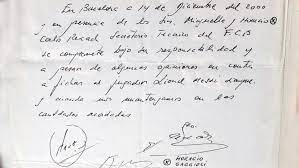 En Barcelona a 14 de Diciembre del 2000
y en presencia de los Srs. Minguella y Horacio
Carlos Rexach Secretario Técnico del F.C.B
se compromete bajo su responsabilidad y
a pesar de algunas opiniones en contra
a fichar al jugador Lionel Messi
siempre y cuando nos mantengamos en las
cantidades acordadas
HORACIO
GAGGIOLI